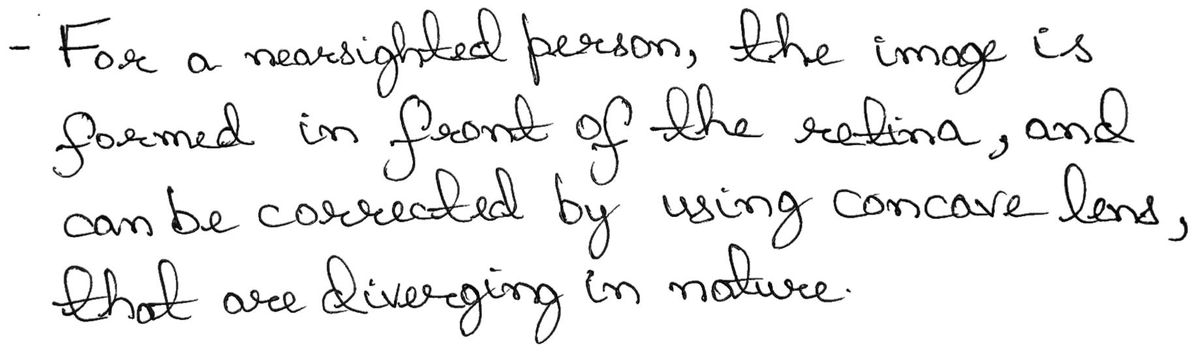 - For a nearsighted person, the image is
formed in front of the retina, and
can be corrected by using concave lens,
that are diverging in nature.